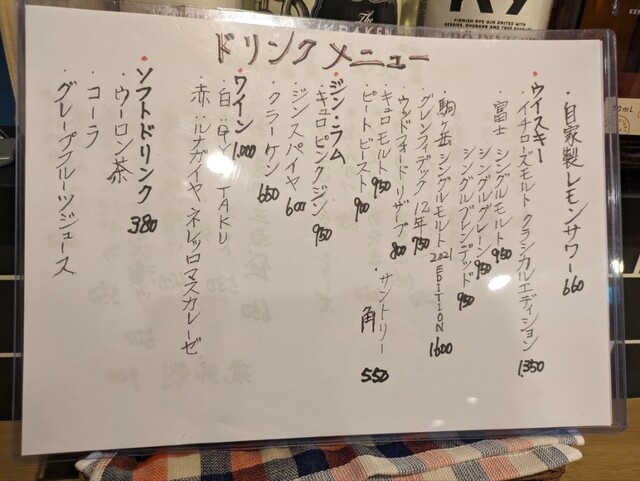 ドリンクメニュー
・自家製レモンサワー 660
・ウイスキー
・イチローズモルト クラシカルエディション 1,350
・富士 シングルモルト 950
シングルグレーン 950
シングルブレンデッド 950
・駒ヶ岳 シングルモルト 2021 EDITION 1600
・グレンフィディック 12年 750
・ウッドフォードリザーブ 800
・キュロモルト 950
・ピートビースト 900
・サントリー
角 550
・ジン・ラム
・キュロピンクジン 950
・ジンスパイヤ 600
・クラーケン 650
・ワイン 1,000
・白:
TAKU
・赤:
ネレッロマスカレーゼ
・ソフトドリンク 380
・ウーロン茶
・コーラ
・グレープフルーツジュース
The
KRAKEN
FINNISH RYE GIN UNITED WITH